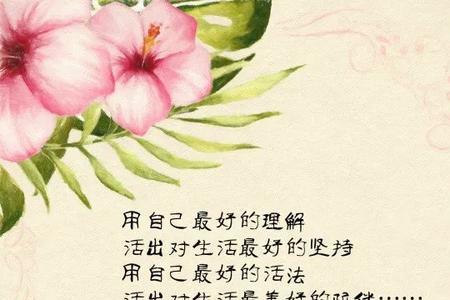 用自己最好的理解
活出对生活最好的坚持
用自己最好的活法
活出对生活最美好的陪伴……